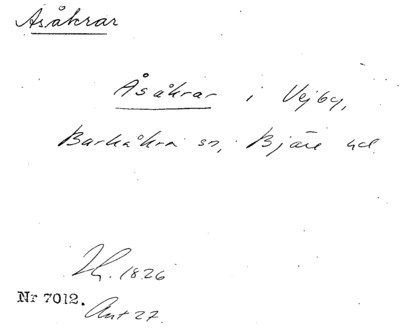 Åsåkrar
Åsåkrar i Vejby,
Barkåkra sn, Bjäre hd.
1826
Nr 7012.
Ant 27.